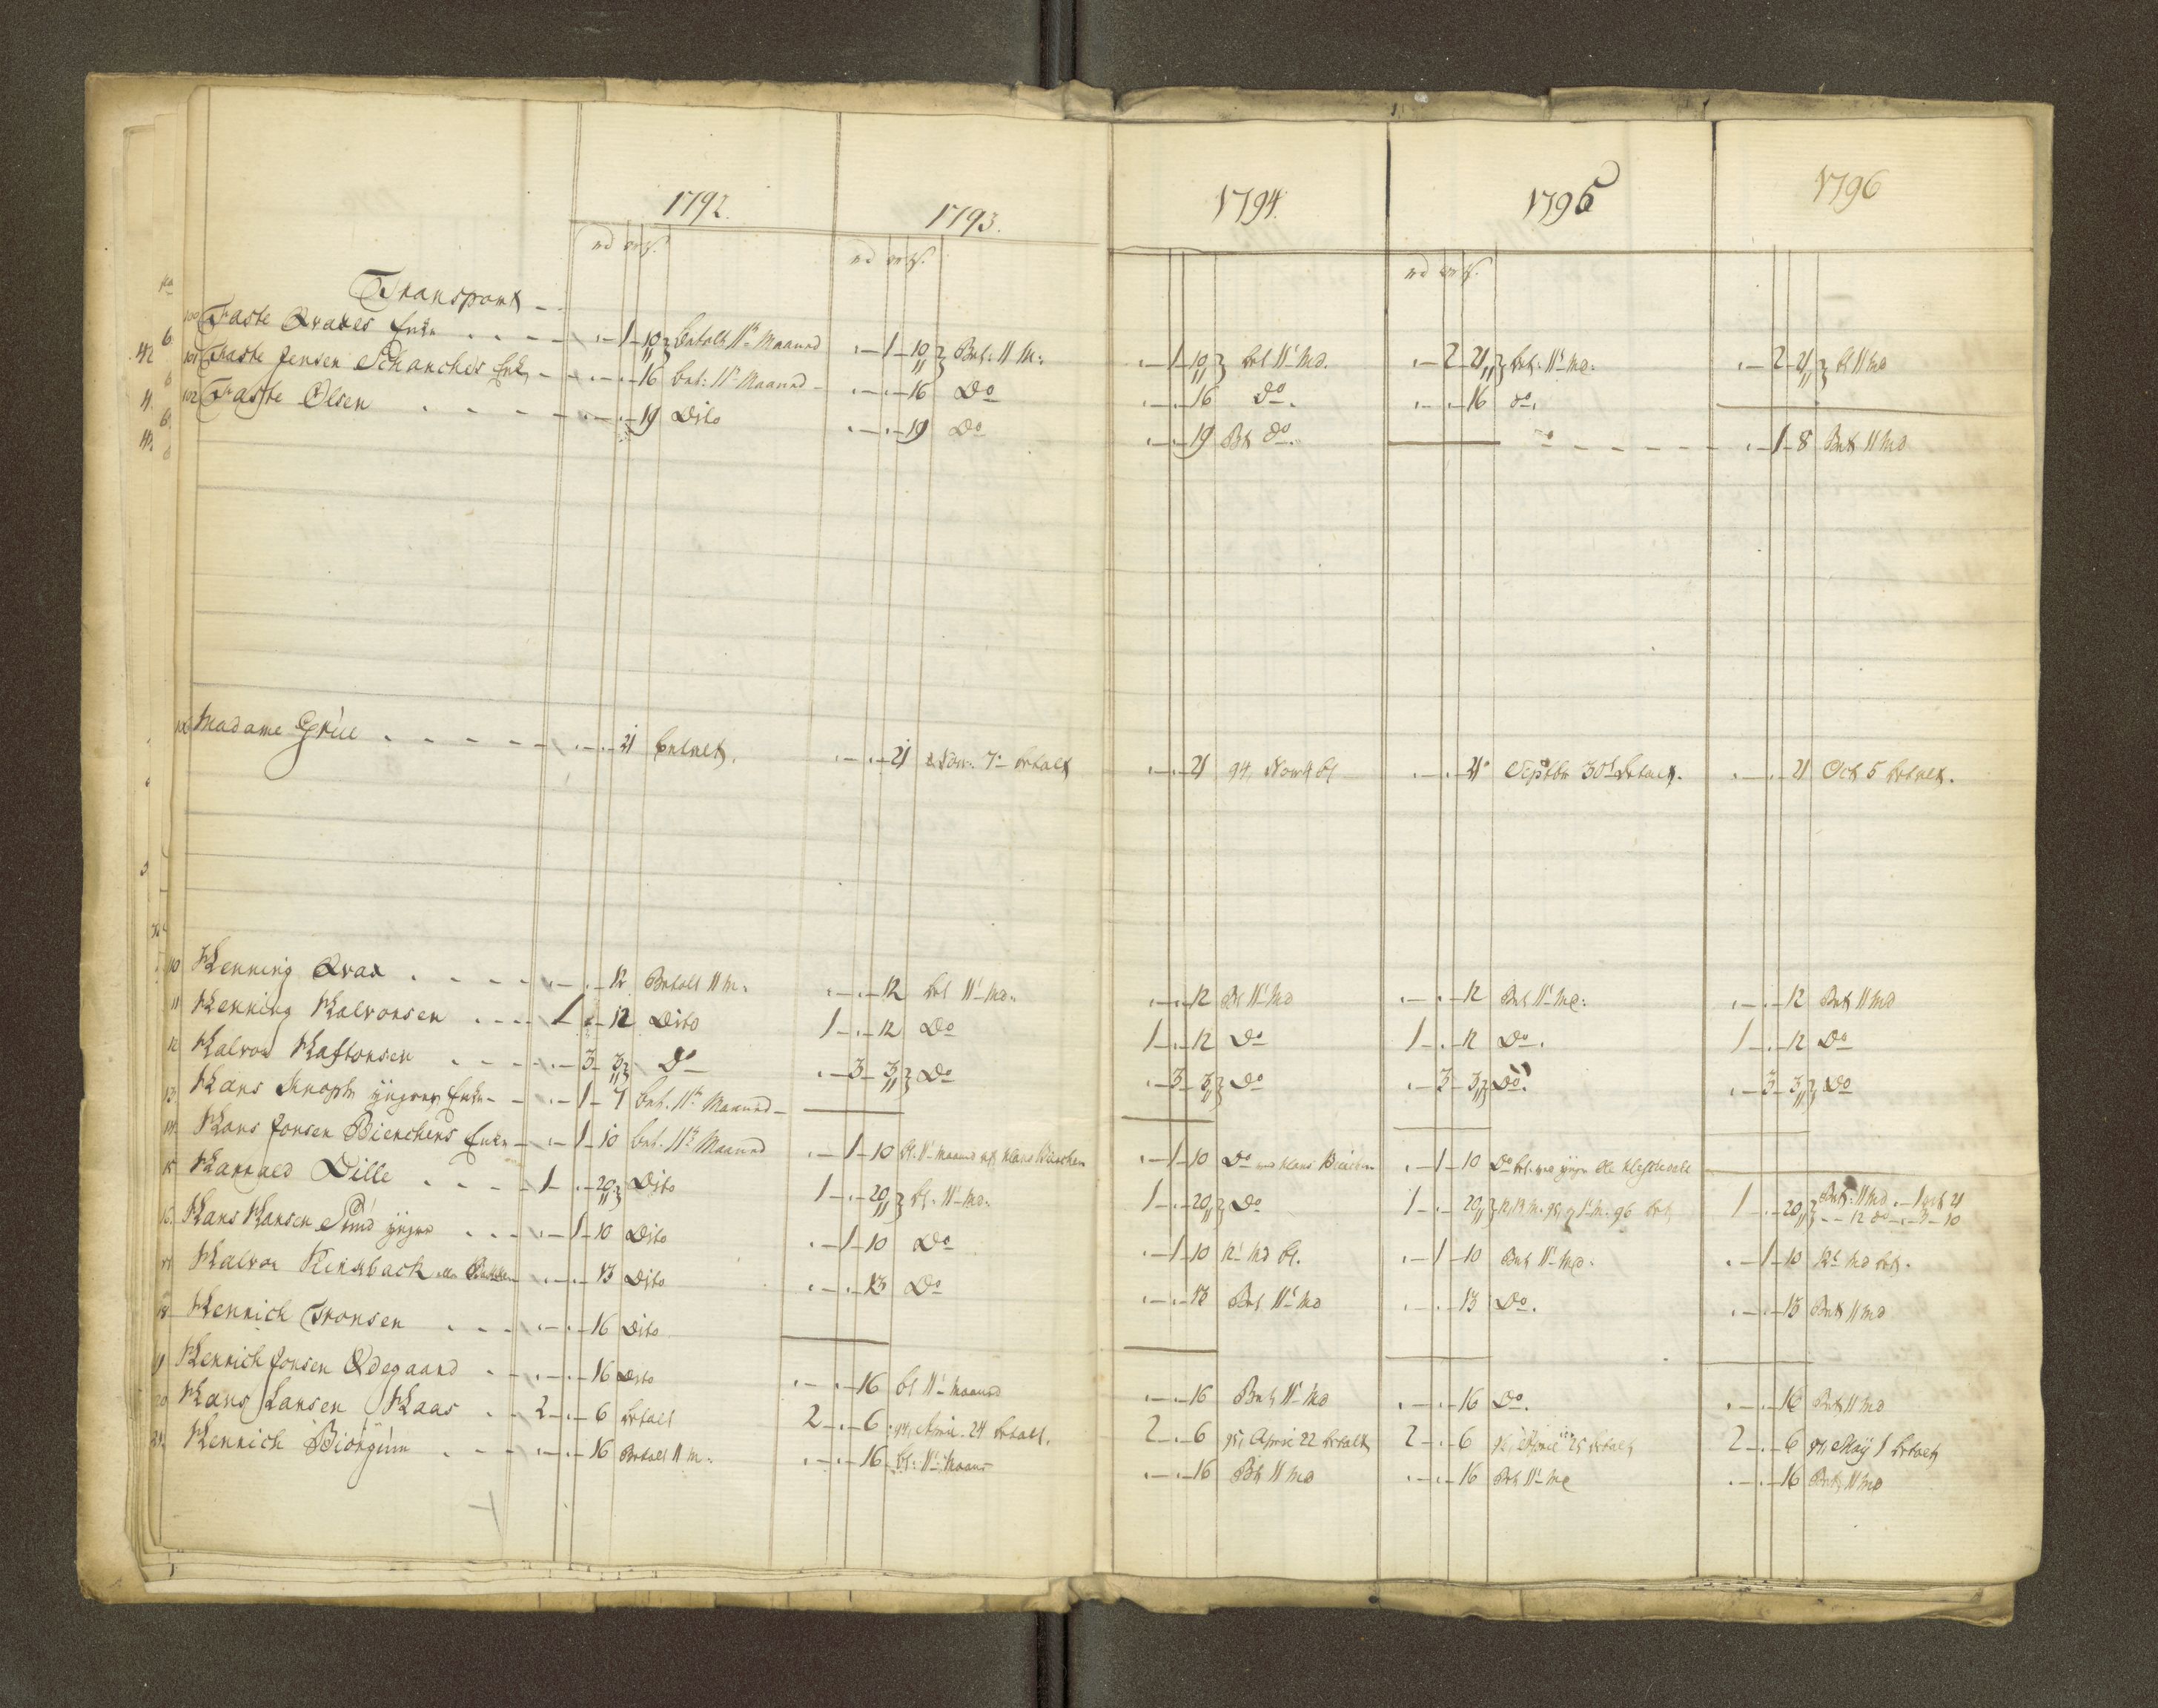 1792. 1793. 1794. 1795 1796
rd ort ß. rd ort ß. rd ort ß.
Transport
100 Faste Qvales Enke - 1 - 10 betalt 11te Maaned - 1 - 10 Bet: 11 M: - 1 - 10 bet 11te Md. - 2 - 21 bet: 11te Md: - 2 - 21 bt 11 Md
101 Faste Jensen Schanches Enke - 16 bet: 11te Maaned - 16 Do - 16 Do. - 16 do.
102 Faste Olsen - 19 Dito - 19 Do - 19 Bet do. - 1 - 8 Bet 11 Md
Madame Grüe - 21 betalt. - 21 Nov: 7de betalt - 21 94, Nov 4 bt - 21 Septbr 30te betalt. - 21 Oct 5 betalt.
10 Henning Qvam - 12 Betalt 11 M: - 12 bet 11te Md: - 12 Bt 11te Md - 12 Bet 11te Md: - 12 Bet 11 Md
11 Henning Halvorsen 1 - 12 Dito 1 - 12 Do 1 - 12 Do 1 - 12 Do. 1 - 12 Do
12 Halvor Haftorsen - 3 - 3 Do - 3 - 3 Do - 3 - 3 Do - 3 - 3 Do. - 3 - 3 Do
13 Hans Knoph yngres Enke - 1 - 7 bet. 11te Maaned
14 Hans Jonsen Bierchens Enke - 1 - 10 bet. 11te Maaned - 1 - 10 bt. 11te Maaned Klaus Bierchen - 1 - 10 Do Klaus Bierchen - 1 - 10 Do bet. Ole
15 Harrald Dille 1 - 20 Dito 1 - 20 bt. 11te Md: 1 - 20 Do 1 - 20 96 bet 1 - 20 Bet: 11 Md - 1 ort 21
- 12 do - 3 - 10
16. Hans Hansen Sund yngre - 1 - 10 Dito - 1 - 10 Do - 1 - 10 12te Md bt. - 1 - 10 Bet 11te Md: - 1 - 10 12te Md bet.
17 Halvor Rinsback - 13 Dito - 13 Do - 13 Bet 11te Md - 13 Do. - 13 Bet 11 Md
18 Henrich Tronsen - 16 Dito
19 Henrich Jonsen Ødegaard - 16 Dito - 16 bt 11te Maaned - 16 Bet 11te Md - 16 Do. - 16 Bet 11 Md
20 Hans Larsen Haas 2 - 6 betalt 2 - 6 94, April 24 betalt. 2 - 6 95, April 22 betalt 2 - 6 96, April 25 betalt 2 - 6 97, May 1 betalt
21. Henrich Biörgum - 16 Betalt 11 M: - 16 bt: 11te Maan - 16 Bet 11 Md - 16 Bet 11te Md - 16 Bet 11 Md